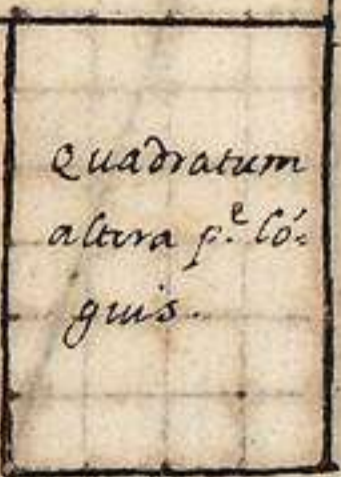 Quadratum
altera p.e ló=
guis.